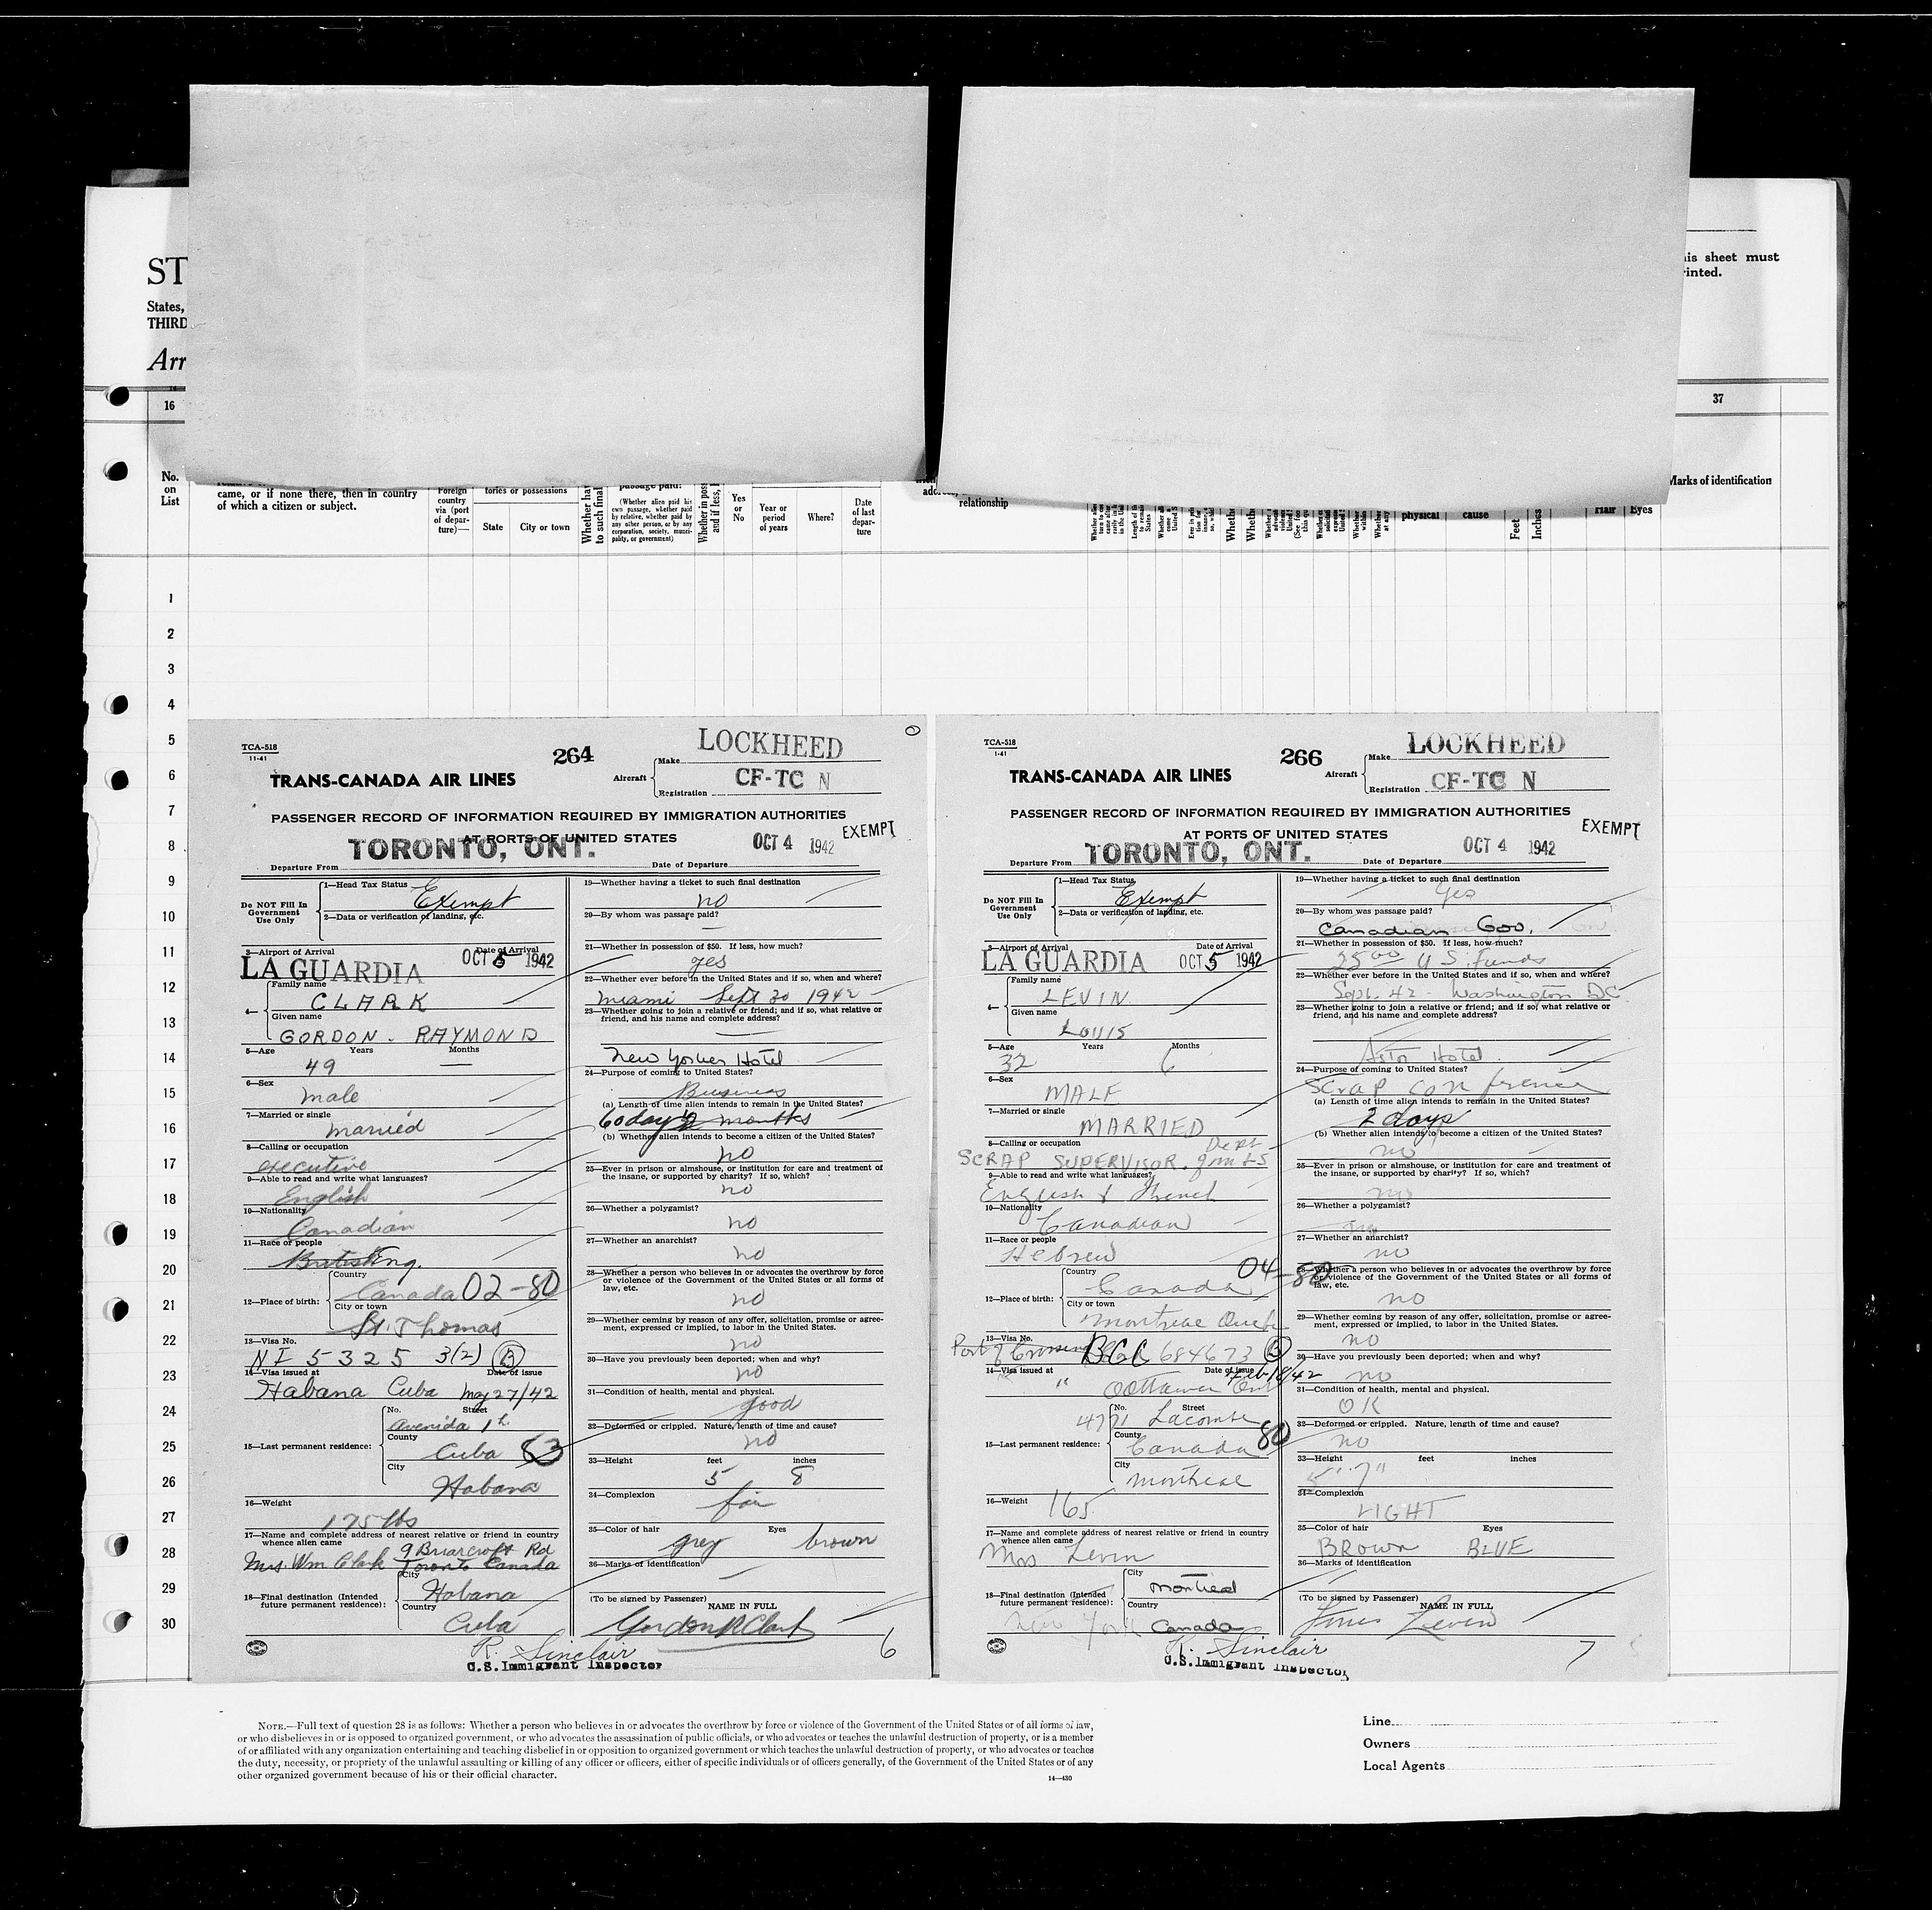 ST
States,
THIRD
Arr
his sheet must
rinted.
16
37
No.
on
List
came, or if none there, then in country
of which a citizen or subject.
Foreign
country
via (port
of depar-
ture)—
tories or possessions
State
City or town
Whether hav
to such final
passage paid?
(Whether alien paid his
own passage, whether paid
by relative, whether paid by
any other person, or by any
corporation, society, munici-
pality, or government)
Whether in poss
and if less,
Yes
or
No
Year or
period
of years
Where?
Date
of last
depar-
ture
relationship
physical
cause
Feet
Inches
Hair
Eyes
Marks of identification
1
2
3
4
5
6
7
8
9
10
11
12
13
14
15
16
17
18
19
20
21
22
23
24
25
26
27
28
29
30
TCA-518
11-41
264
LOCKHEED
TRANS-CANADA AIR LINES
Aircraft
Make
Registration
CF-TC N
PASSENGER RECORD OF INFORMATION REQUIRED BY IMMIGRATION AUTHORITIES
AT PORTS OF UNITED STATES
EXEMPT
Departure From TORONTO, ONT.
Date of Departure OCT 4 1942
Do NOT Fill In
Government
Use Only
1—Head Tax Status
Exempt
2—Data or verification of landing, etc.
3—Airport of Arrival
LA GUARDIA
Date of Arrival
OCT 5 1942
4—
Family name
CLARK
Given name
GORDON. RAYMOND
5—Age Years Months
49 —
6—Sex
male
7—Married or single
married
8—Calling or occupation
executive
9—Able to read and write what languages?
English
10—Nationality
Canadian
11—Race or people
British Eng.
12—Place of birth:
Country
Canada 02-80
City or town
St. Thomas
13—Visa No.
NI 5325 3(2) B
14—Visa issued at Date of issue
Habana Cuba May 27/42
15—Last permanent residence:
No. Street
Avenida 1
County
Cuba 83
City
Habana
16—Weight
175 lbs
17—Name and complete address of nearest relative or friend in country
whence alien came
Mrs. Wm Clark 9 Briarcroft Rd
Toronto Canada
18—Final destination (Intended
future permanent residence):
City
Habana
Country
Cuba
19—Whether having a ticket to such final destination
no
20—By whom was passage paid?
—
21—Whether in possession of $50. If less, how much?
yes
22—Whether ever before in the United States and if so, when and where?
Miami Sept 30 1942
23—Whether going to join a relative or friend; and if so, what relative or
friend, and his name and complete address?
—
New Yorker Hotel
24—Purpose of coming to United States?
Business
(a) Length of time alien intends to remain in the United States?
60 days 2 months
(b) Whether alien intends to become a citizen of the United States?
no
25—Ever in prison or almshouse, or institution for care and treatment of
the insane, or supported by charity? If so, which?
no
26—Whether a polygamist?
no
27—Whether an anarchist?
no
28—Whether a person who believes in or advocates the overthrow by force
or violence of the Government of the United States or all forms of
law, etc.
no
29—Whether coming by reason of any offer, solicitation, promise or agree-
ment, expressed or implied, to labor in the United States.
no
30—Have you previously been deported; when and why?
no
31—Condition of health, mental and physical.
good
32—Deformed or crippled. Nature, length of time and cause?
no
33—Height feet inches
5 8
34—Complexion
fair
35—Color of hair Eyes
grey brown
36—Marks of identification
—
(To be signed by Passenger)
NAME IN FULL
Gordon R Clark
R. Sinclair
U.S. Immigrant Inspector
6
TCA-518
1-41
266
LOCKHEED
TRANS-CANADA AIR LINES
Aircraft
Make
Registration
CF-TC N
PASSENGER RECORD OF INFORMATION REQUIRED BY IMMIGRATION AUTHORITIES
AT PORTS OF UNITED STATES
EXEMPT
Departure From TORONTO, ONT.
Date of Departure OCT 4 1942
Do NOT Fill In
Government
Use Only
1—Head Tax Status
Exempt
2—Data or verification of landing, etc.
3—Airport of Arrival
LA GUARDIA
Date of Arrival
OCT 5 1942
4—
Family name
LEVIN
Given name
LOUIS
5—Age Years Months
32 6
6—Sex
MALE
7—Married or single
MARRIED
8—Calling or occupation
SCRAP SUPERVISOR. Dept
9—Able to read and write what languages?
English & French
10—Nationality
Canadian
11—Race or people
Hebrew
12—Place of birth:
Country
Canada 04-80
City or town
Montreal Quebec
13—Visa No.
Port of Crossing BCC 684673 B
14—Visa issued at Date of issue
" Ottawa Ont Feb 18/42
15—Last permanent residence:
No. Street
4771 Lacombe
County
Canada 80
City
Montreal
16—Weight
165
17—Name and complete address of nearest relative or friend in country
whence alien came
Mrs Levin
18—Final destination (Intended
future permanent residence):
City
Montreal
Country
New York Canada
19—Whether having a ticket to such final destination
Yes
20—By whom was passage paid?
Canadian Gov.
21—Whether in possession of $50. If less, how much?
25 00 U S. funds
22—Whether ever before in the United States and if so, when and where?
Sept. 42 - Washington DC.
23—Whether going to join a relative or friend; and if so, what relative or
friend, and his name and complete address?
Astor Hotel.
24—Purpose of coming to United States?
Scrap conference
(a) Length of time alien intends to remain in the United States?
2 days
(b) Whether alien intends to become a citizen of the United States?
no
25—Ever in prison or almshouse, or institution for care and treatment of
the insane, or supported by charity? If so, which?
no
26—Whether a polygamist?
no
27—Whether an anarchist?
no
28—Whether a person who believes in or advocates the overthrow by force
or violence of the Government of the United States or all forms of
law, etc.
no
29—Whether coming by reason of any offer, solicitation, promise or agree-
ment, expressed or implied, to labor in the United States.
no
30—Have you previously been deported; when and why?
no
31—Condition of health, mental and physical.
OK
32—Deformed or crippled. Nature, length of time and cause?
no
33—Height feet inches
5' 7"
34—Complexion
LIGHT
35—Color of hair Eyes
BROWN BLUE
36—Marks of identification
(To be signed by Passenger)
NAME IN FULL
Louis Levin
R. Sinclair
U.S. Immigrant Inspector
7
NOTE.—Full text of question 28 is as follows: Whether a person who believes in or advocates the overthrow by force or violence of the Government of the United States or of all forms of law,
or who disbelieves in or is opposed to organized government, or who advocates the assassination of public officials, or who advocates or teaches the unlawful destruction of property, or is a member
of or affiliated with any organization entertaining and teaching disbelief in or opposition to organized government or which teaches the unlawful destruction of property, or who advocates or teaches
the duty, necessity, or propriety of the unlawful assaulting or killing of any officer or officers, either of specific individuals or of officers generally, of the Government of the United States or of any
other organized government because of his or their official character.
14—430
Line
Owners
Local Agents